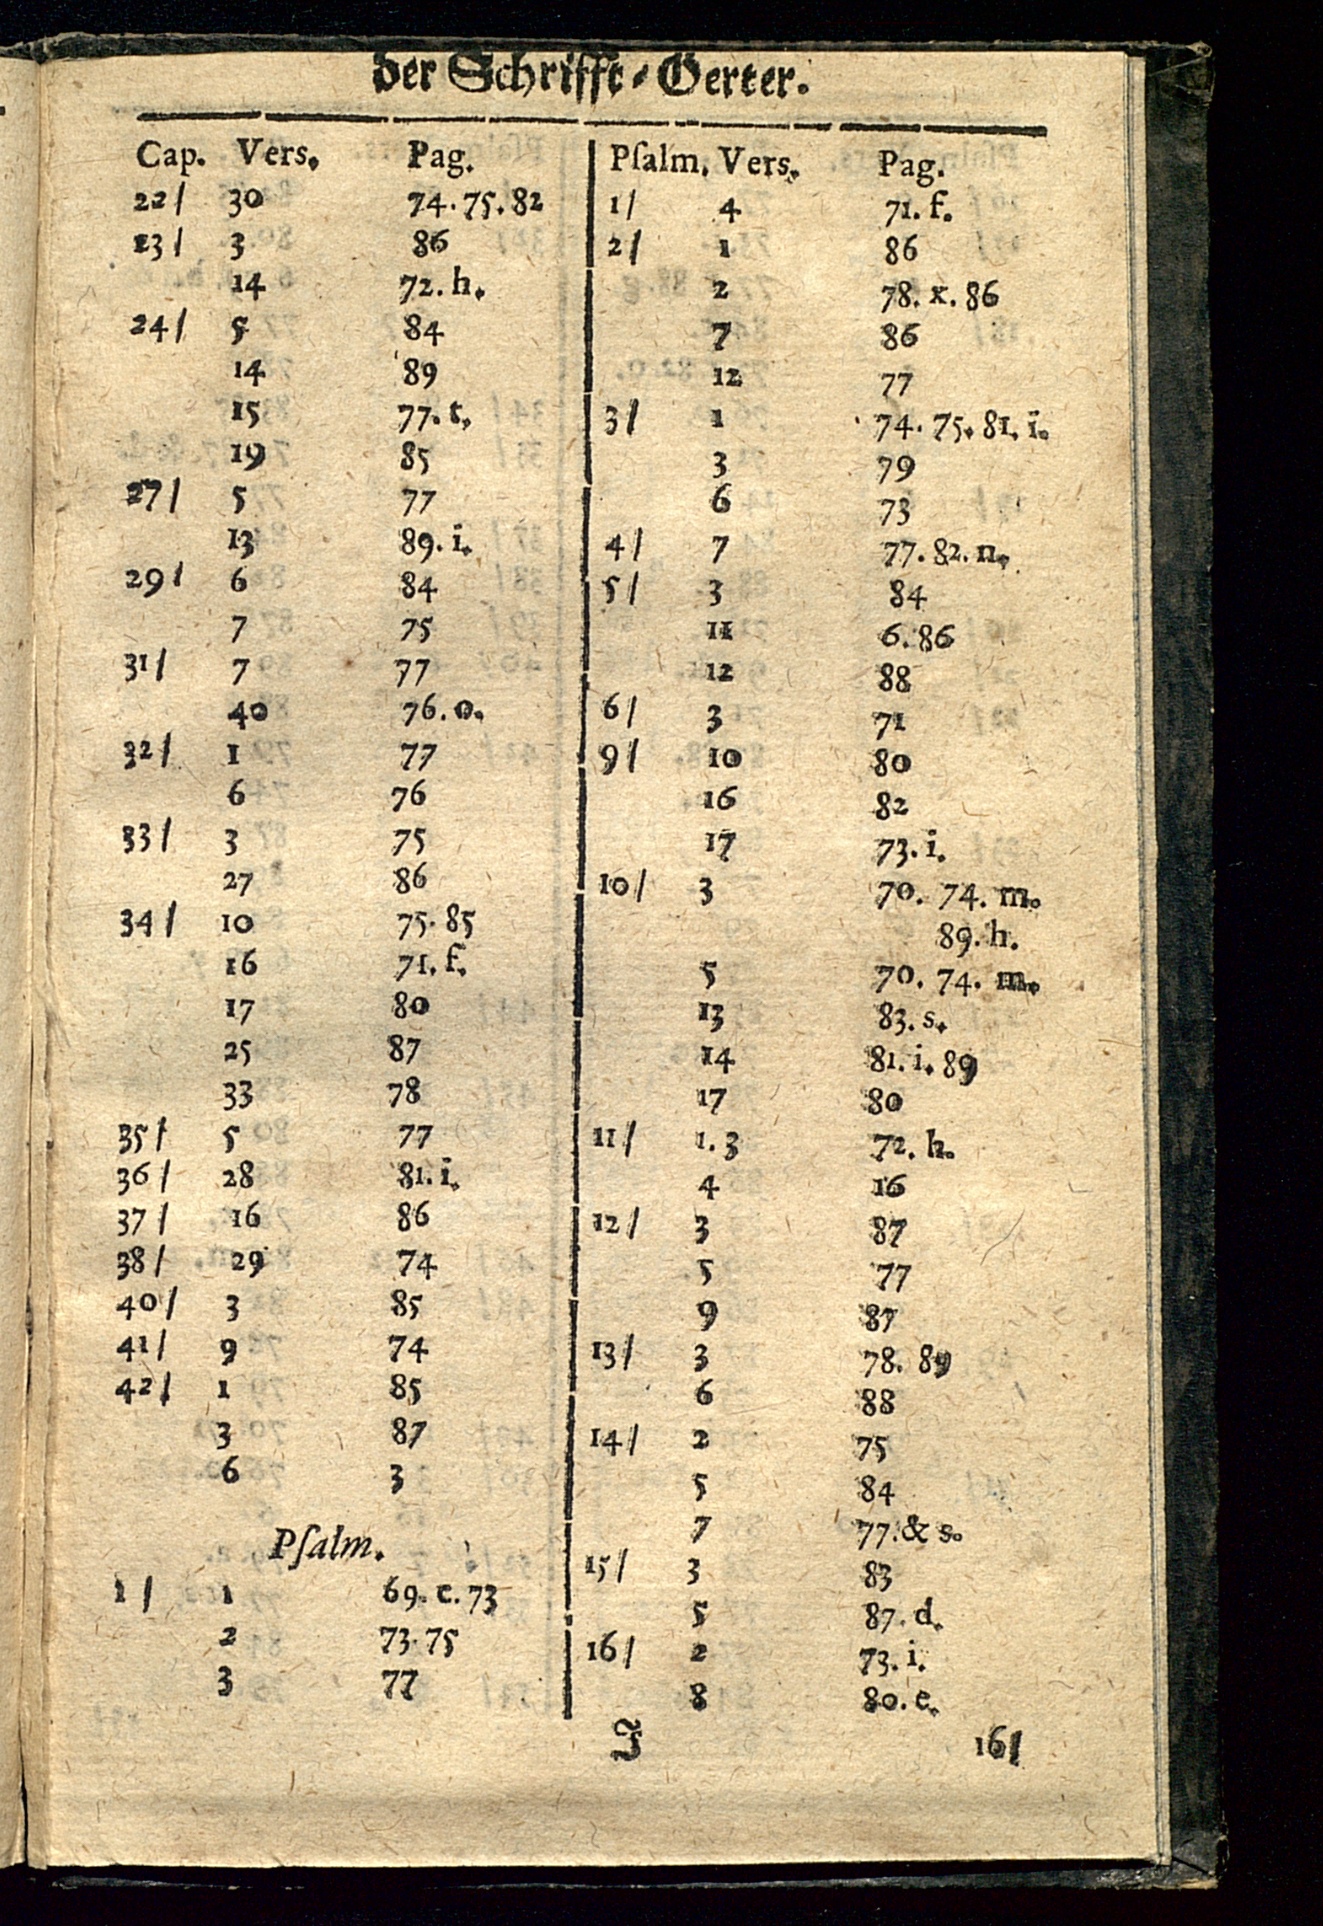 der Schrifft-Oerter.
Cap. Vers. Pag.
22/ 30 74. 75. 82
23/ 3 86
14 72. h.
24/ 5 84
14 89
15 77. t.
19 85
27/ 5 77
13 89. i.
29/ 6 84
7 75
31/ 7 77
40 76. o.
32/ 1 77
6 76
33/ 3 75
27 86
34/ 10 75. 85
16 71. f.
17 80
25 87
33 78
35/ 5 77
36/ 28 81. i.
37/ 16 86
38/ 29 74
40/ 3 85
41/ 9 74
42/ 1 85
3 87
6 3
Pſalm.
1/ 1 69. e. 73
2 73. 75
3 77
Pſalm. Vers. Pag.
1/ 4 71. f.
2/ 1 86
2 78. x. 86
7 86
12 77
3/ 1 74. 75. 81. i.
3 79
6 73
4/ 7 77. 82. n.
5/ 3 84
11 6. 86
12 88
6/ 3 71
9/ 10 80
16 82
17 73. i.
10/ 3 70. 74. m.
89. h.
5 70. 74. m.
13 83. s.
14 81. i. 89
17 80
11/ 1. 3 72. h.
4 16
12/ 3 87
5 77
9 87
13/ 3 78. 89
6 88
14/ 2 75
5 84
7 77. & s.
15/ 3 83
5 87. d.
16/ 2 73. i.
8 80. e.
J 16/